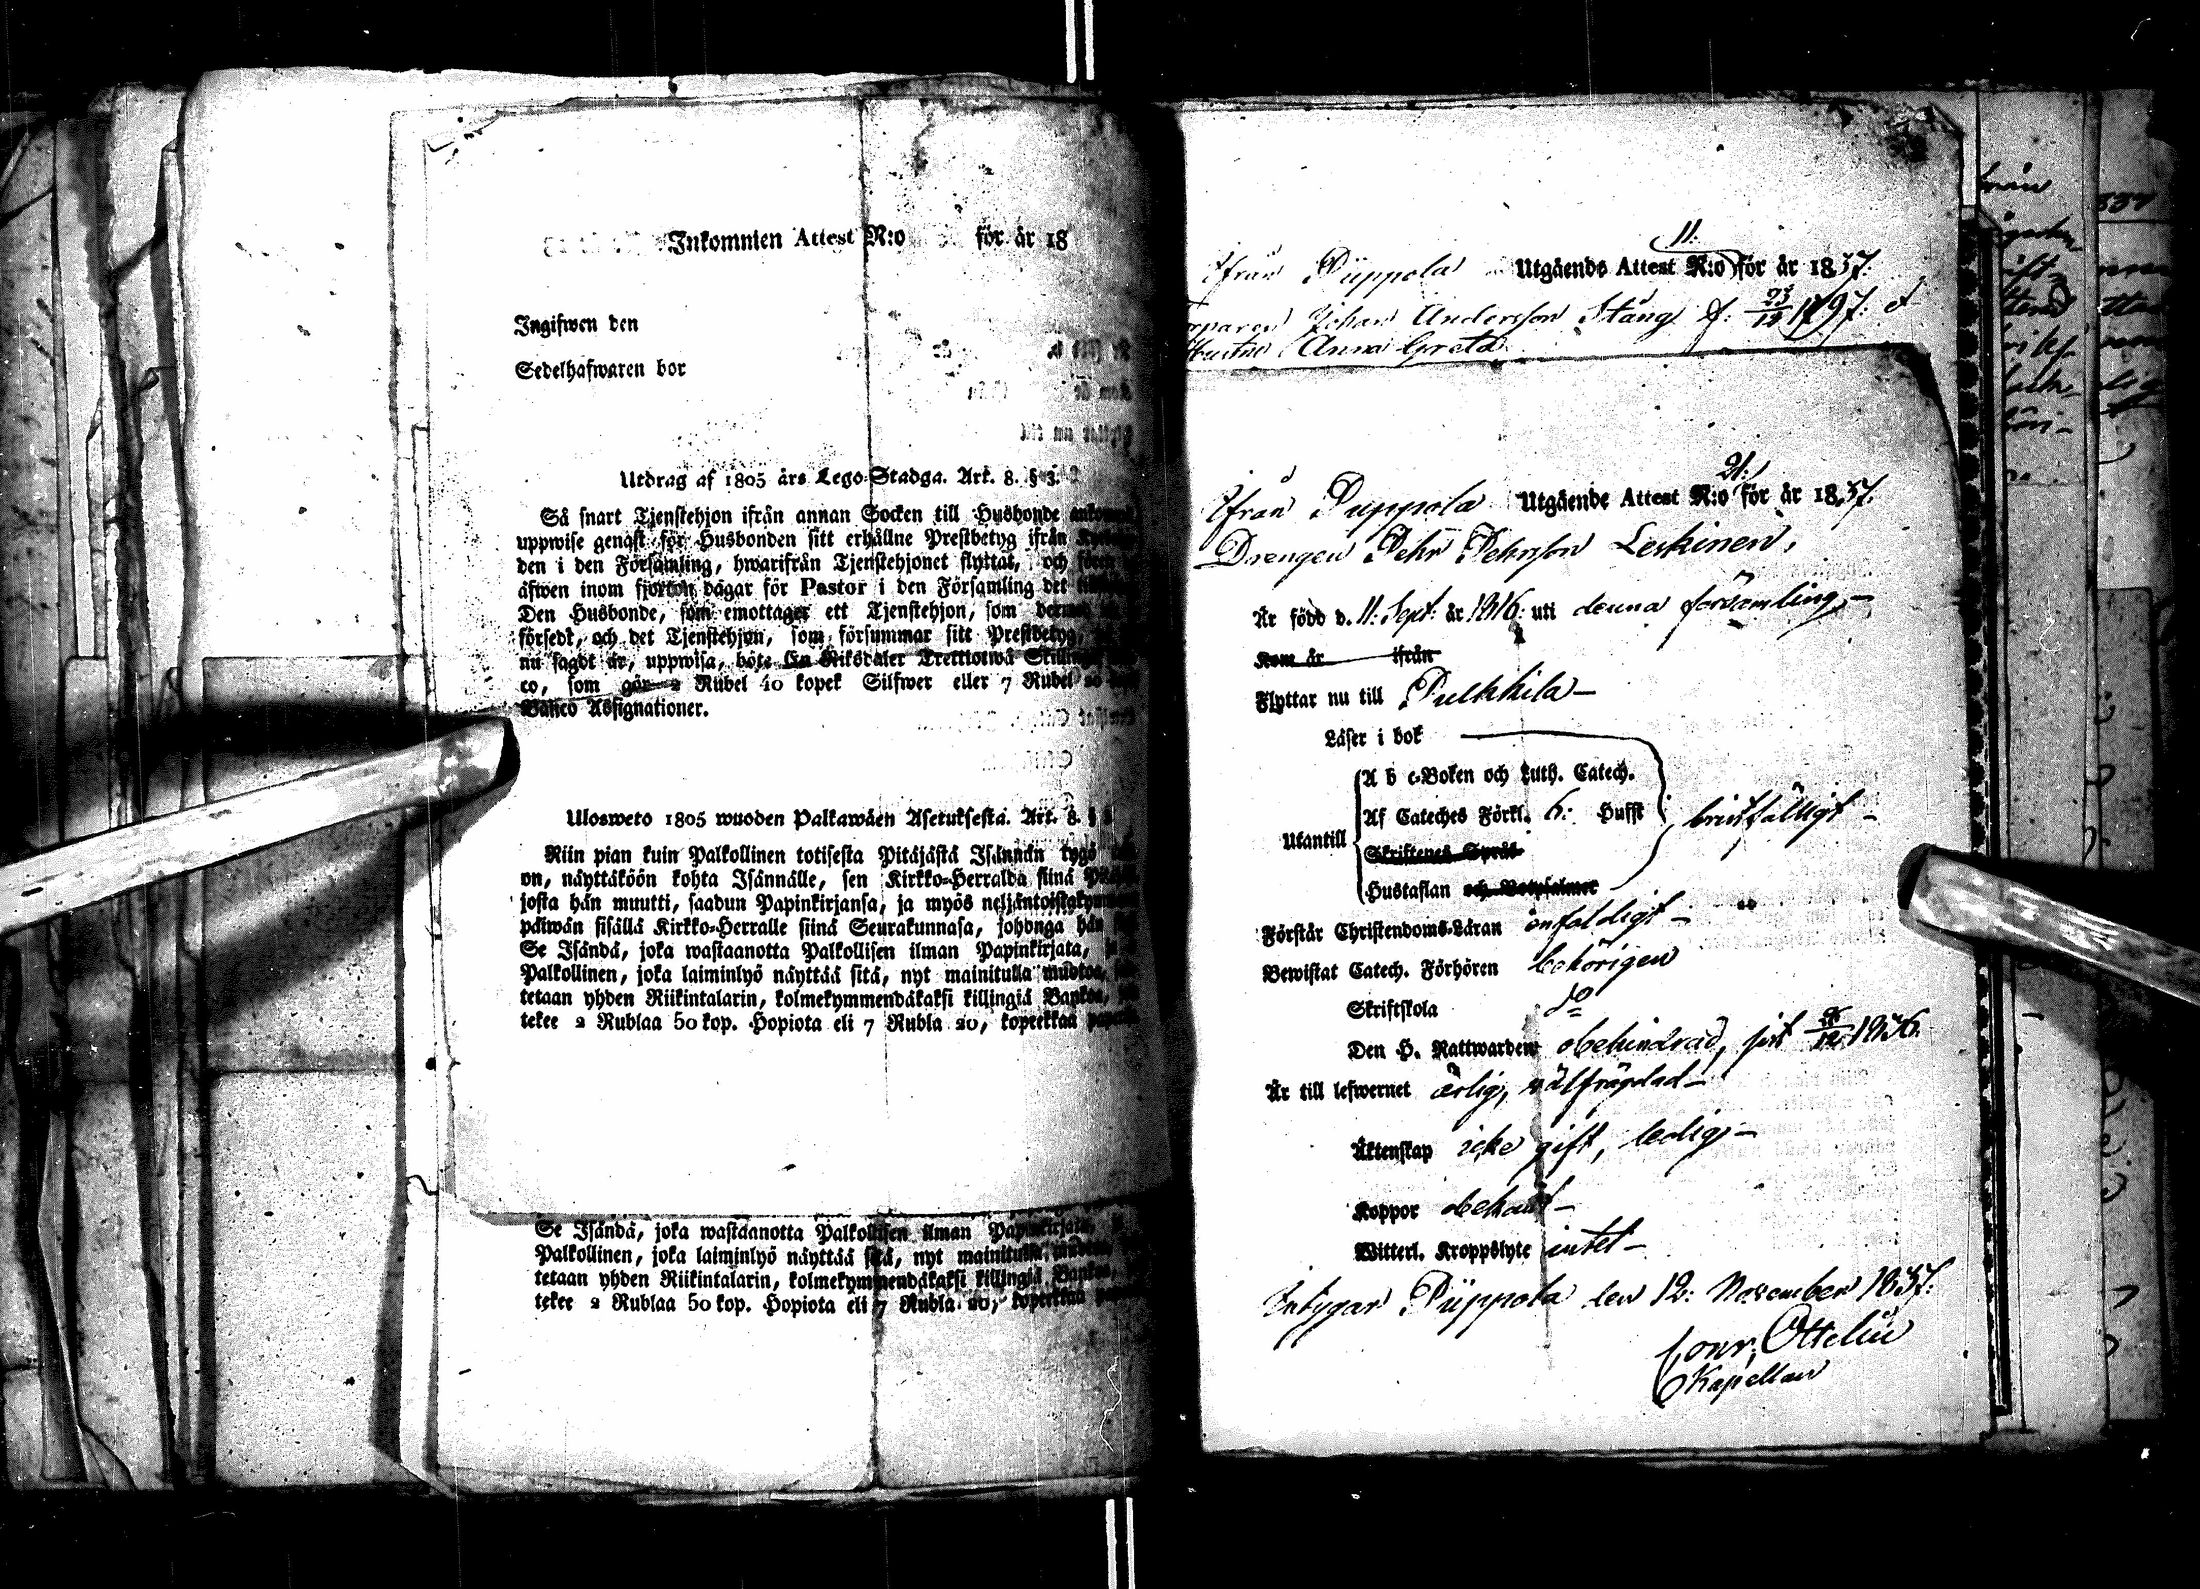 Inkommen Attest N:o för år 18
Ingifwen den
Sedelhafwaren bor
Utdrag af 1805 års Lego-Stadga. Art. 8. § 3.
Så snart Tjenstehjon ifrån annan Socken till Husbonde
uppwise genast för Husbonden sitt erhållne Prestbetyg ifrån
den i den Församling, hwarifrån Tjenstehjonet flyttat, och
äfwen inom fjorton dagar för Pastor i den Församling det
Den Husbonde, som emottager ett Tjenstehjon, som
försedt, och det Tjenstehjon, som försummar sitt Prestbetyg,
nu sagdt är, uppwisa, böte En Riksdaler Trettiotwå Skillingar
co, som gör 2 Rubel 40 kopek Silfwer eller 7 Rubel
Banco Assignationer.
Ulosweto 1805 wuoden Palkawäen Asetuksesta. Art. 8. §
Niin pian kuin Palkollinen totisesta Pitäjästä Isännän tygö
on, näyttäköön kohta Isännälle, sen Kirkko-Herralda siinä
josta hän muutti, saadun Papinkirjansa, ja myös neljäntoistakymmenen
päiwän sisällä Kirkko-Herralle siinä Seurakunnasa, johonga hän
Se Isändä, joka wastaanotta Palkollisen ilman Papinkirjata,
Palkollinen, joka laiminlyö näyttää sitä, nyt mainitulla muotoa,
tetaan yhden Riikintalarin, kolmekymmendäkaksi killingiä Bankos,
tekee 2 Rublaa 50 kop. Hopiota eli 7 Rubla 20, kopeekkaa
Se Isändä, joka wastaanotta Palkollisen ilman Papinkirjata,
Palkollinen, joka laiminlyö näyttää sitä, nyt mainitulla
tetaan yhden Riikintalarin, kolmekymmendäkaksi killingiä Bankos,
tekee 2 Rublaa 50 kop. Hopiota eli 7 Rubla 20, kopeekkaa
11.
Ifrån Piippola Utgående Attest N:o för år 1837.
Torparen Johan Andersson Stång f: 23/12 1797: o
Hustru Anna Greta
21:
Ifrån Piippola Utgående Attest N:o för år 1837.
Drengen Pehr Pehrsson Leskinen,
Är född d. 11: Sept: år 1816: uti denna församling, –
Kom år ifrån
Flyttar nu till Pulkkila –
Läser i bok
A b c-Boken och Luth. Catech.
Utantill Af Cateches Förkl. 6: Hufst bristfälligt –
Skriftenes Språk
Hustaflan och Botpsalmer
Förstår Christendoms-Läran enfaldigt –
Bewistat Catech. Förhören behörigen
Skriftskola do
Den H. Nattwarden obehindrad, sist 1836.
Är till lefwernet ärlig, välfräjdad –
Äktenskap icke gift, ledig –
Koppor obekant –
Witterl. Kroppslyte intet –
Intygar Piippola den 12: November 1837:
Conr. Ottelin
Kapellan